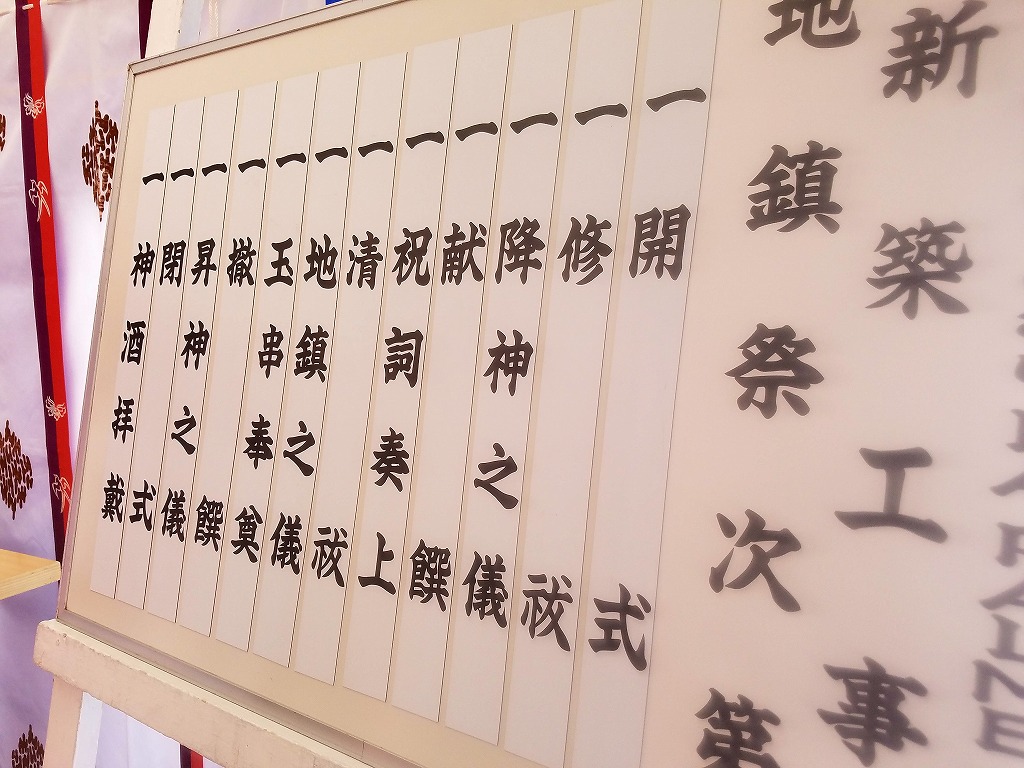 新築工事
地鎮祭次第
一開式
一修祓
一降神之儀
一献饌
一祝詞奏上
一清祓
一地鎮之儀
一玉串奉奠
一撤饌
一昇神之儀
一閉式
一神酒拝戴